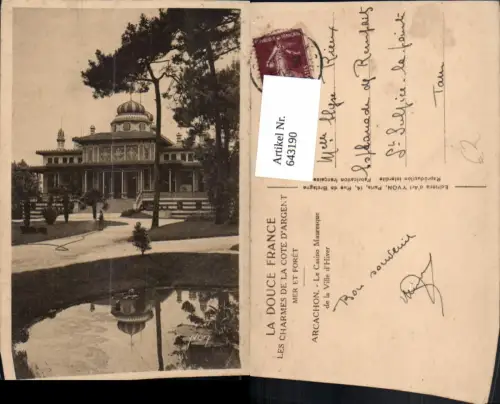 Artikel Nr.
643190
Melle
Esplanade de Rempart
St Sulpice la pointe
Tarn
62
Editions d'Art YVON, Paris, 14, Rue de Bretagne
Reproduction interdite Fabrication française
LA DOUCE FRANCE
LES CHARMES DE LA COTE D'ARGENT
MER ET FORÊT
ARCACHON. - Le Casino Mauresque
de la Ville d'Hiver
Bon souvenir